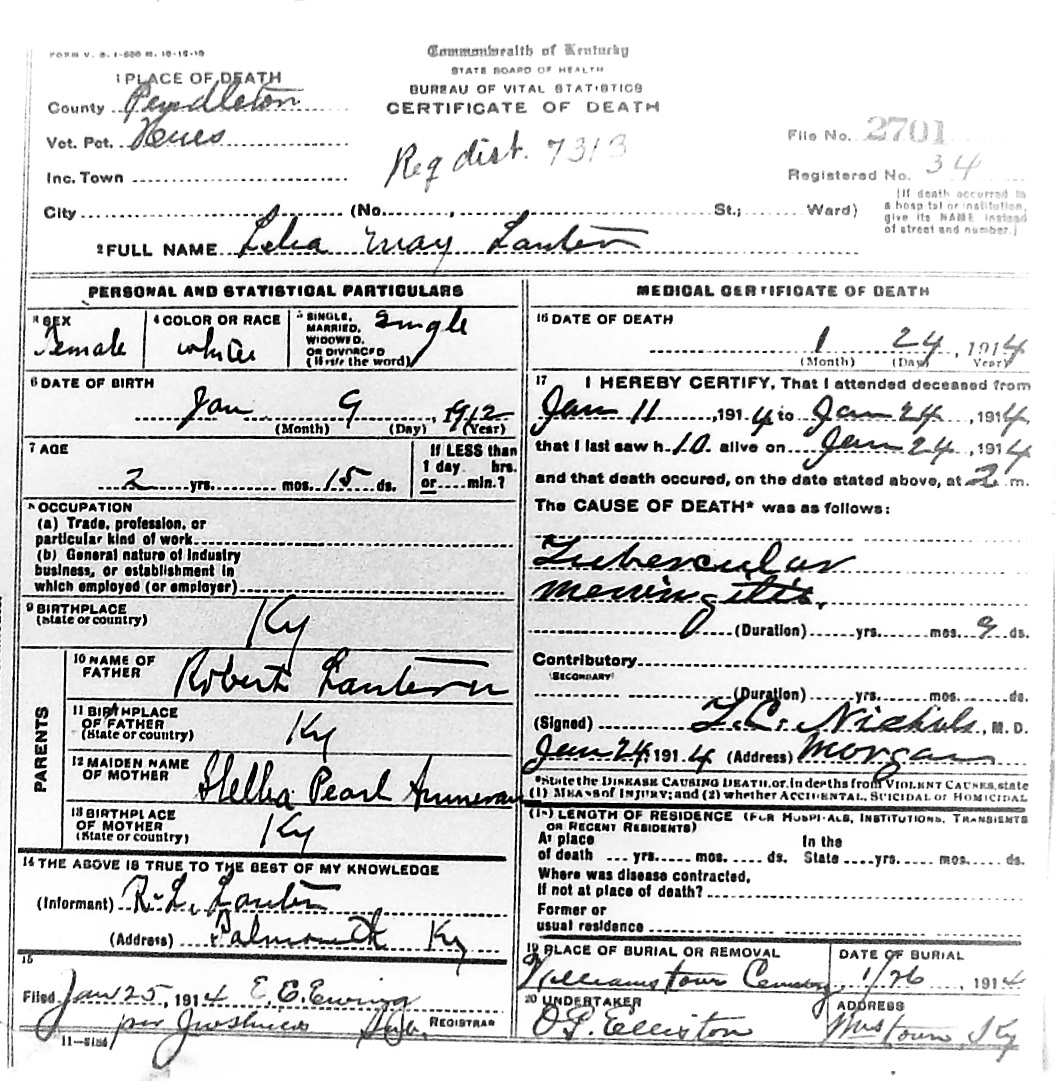 FORM V. S. 1-500 M. 10-16-10
Commonwealth of Kentucky
STATE BOARD OF HEALTH
BUREAU OF VITAL STATISTICS
CERTIFICATE OF DEATH
1 PLACE OF DEATH
County Pendleton
Vot. Pct.
Inc. Town
Reg dist. 7313
File No. 2701
Registered No. 34
City (No. , St.; Ward)
(If death occurred in
a hospital or institution,
give its NAME instead
of street and number.)
2 FULL NAME Lelia May Lantern
PERSONAL AND STATISTICAL PARTICULARS
3 SEX
Female
4 COLOR OR RACE
white
5 SINGLE,
MARRIED,
WIDOWED,
OR DIVORCED
(Write the word)
Single
6 DATE OF BIRTH
Jan 9, 1912
(Month) (Day) (Year)
7 AGE
2 yrs. mos. 15 ds.
If LESS than
1 day hrs.
or min.?
8 OCCUPATION
(a) Trade, profession, or
particular kind of work
(b) General nature of industry
business, or establishment in
which employed (or employer)
9 BIRTHPLACE
(State or country)
Ky
PARENTS
10 NAME OF
FATHER
Robert Lantern
11 BIRTHPLACE
OF FATHER
(State or country)
Ky
12 MAIDEN NAME
OF MOTHER
Stella Pearl
13 BIRTHPLACE
OF MOTHER
(State or country)
Ky
14 THE ABOVE IS TRUE TO THE BEST OF MY KNOWLEDGE
(Informant) R. L. Lantern
(Address) Falmouth Ky
15
Filed Jan 25, 1914 E. E. Ewing
per REGISTRAR
11-5184
MEDICAL CERTIFICATE OF DEATH
16 DATE OF DEATH
1 24, 1914
(Month) (Day) Year)
17 I HEREBY CERTIFY, That I attended deceased from
Jan 11, 1914 to Jan 24, 1914
that I last saw h alive on Jan 24, 1914
and that death occured, on the date stated above, at 2 m.
The CAUSE OF DEATH* was as follows:
Tubercular
meningitis.
(Duration) yrs. mos. 9 ds.
Contributory
(SECONDARY)
(Duration) yrs. mos. ds.
(Signed) L. C. Nichols, M. D.
Jan 24, 1914 (Address) Morgan
*State the DISEASE CAUSING DEATH, or, in deaths from VIOLENT CAUSES, state
(1) MEANS of INJURY; and (2) whether ACCIDENTAL, SUICIDAL or HOMICIDAL
(18) LENGTH OF RESIDENCE (FOR HOSPITALS, INSTITUTIONS, TRANSIENTS
OR RECENT RESIDENTS)
At place In the
of death yrs. mos. ds. State yrs. mos. ds.
Where was disease contracted,
if not at place of death?
Former or
usual residence
19 PLACE OF BURIAL OR REMOVAL
Williamstown Cemetery
DATE OF BURIAL
1/26, 1914
20 UNDERTAKER
O. P. Elliston
ADDRESS
Wmstown, Ky